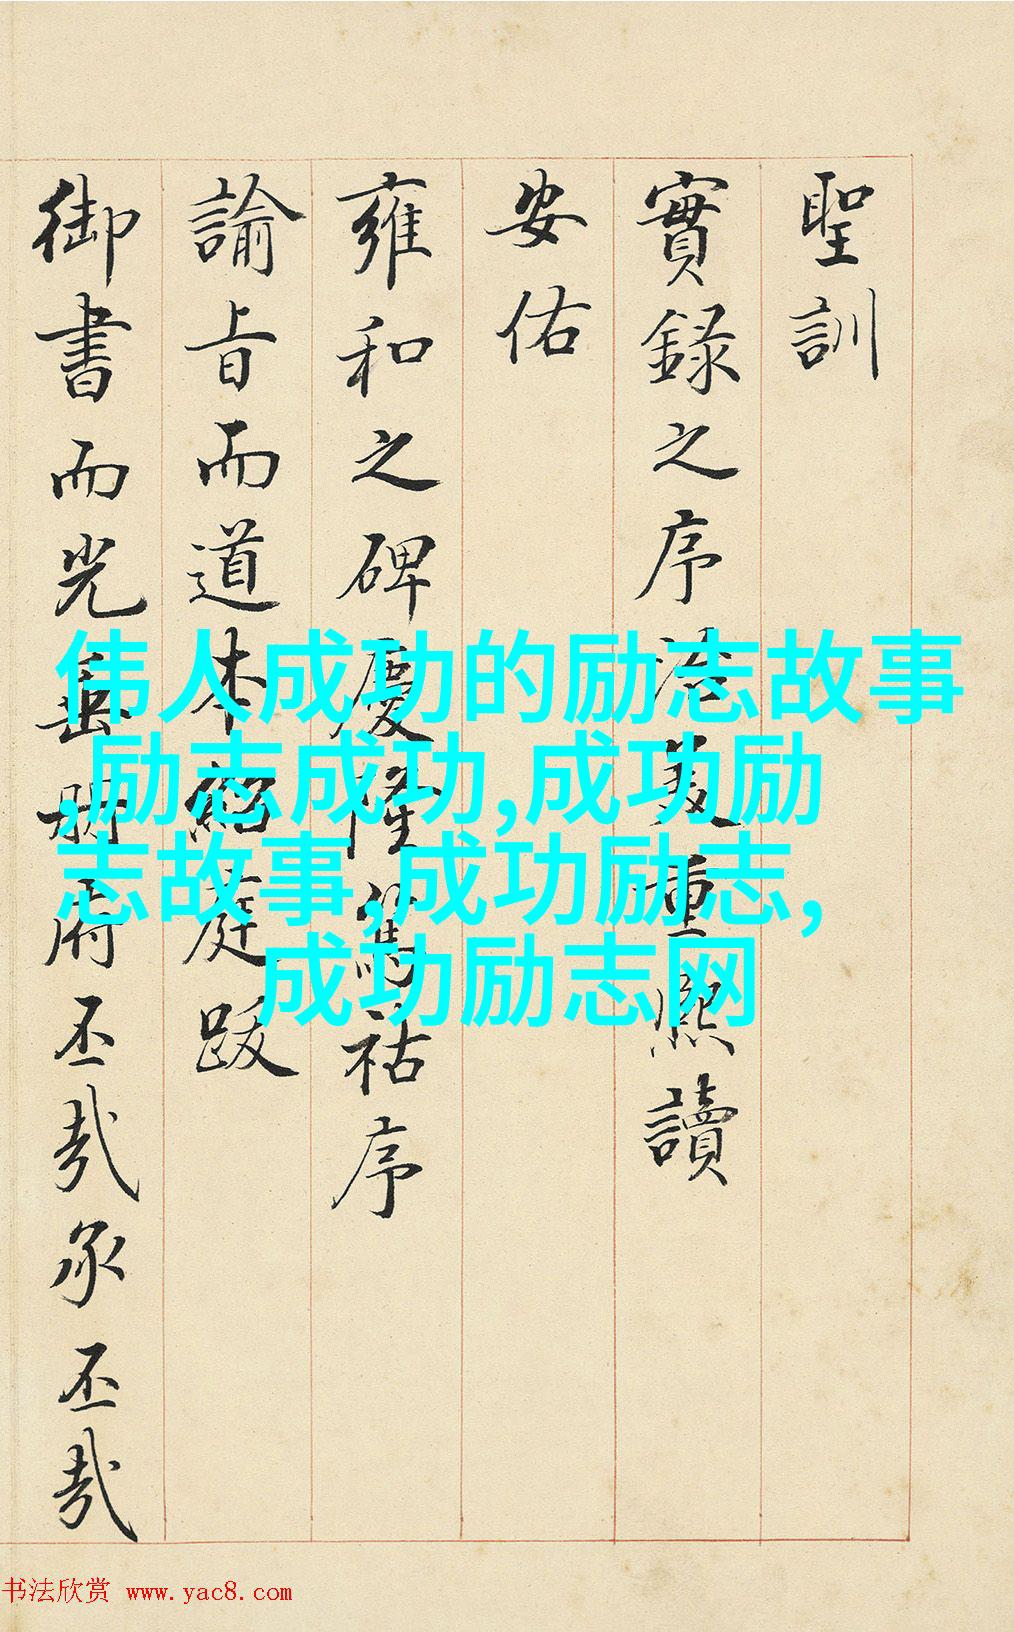 聖訓
實録之序浩美重熙讀
安佑
雍和之碑慶隆篤祜序
諭旨而道本紹庭跋
御書而光垂册府丕哉承丕哉
伟人成功的励志故事
,励志成功,成功励
志故事,成功励志,
成功励志网
书法欣赏 www.yac8.com